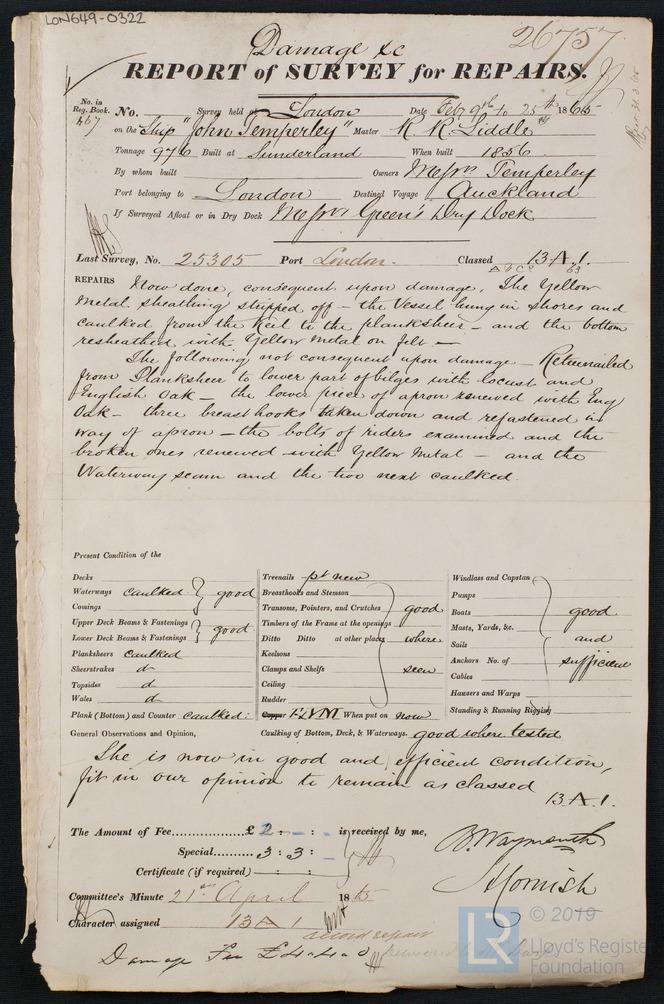 LON649-0322
Damage &c
26757
REPORT of SURVEY for REPAIRS.
No. in Reg. Book. 467
No. Survey held at London Date Feby 9th to 25th 1865
on the Ship "John Temperley" Master R. R. Liddle
Tonnage 976 Built at Sunderland When built 1856
By whom built Owners Messrs Temperley
Port belonging to London Destined Voyage Auckland
If Surveyed Afloat or in Dry Dock Messrs Green's Dry Dock
Last Survey, No. 25305 Port London. Classed 13 A 1.
63
REPAIRS Now done, consequent upon damage, The Yellow
Metal sheathing stripped off – the Vessel hung in shores and
caulked from the Keel to the planksheer – and the bottom
resheathed with Yellow Metal on felt –
The following not consequent upon damage – Retreenailed
from Planksheer to lower part of bilges with locust and
English Oak – the lower piece of apron renewed with Eng
Oak – three breasthooks taken down and refastened in
way of apron – the bolts of riders examined and the
broken ones renewed with Yellow Metal – and the
Waterway seam and the two next caulked.
Present Condition of the
Decks
Waterways caulked good
Comings
Upper Deck Beams & Fastenings good
Lower Deck Beams & Fastenings
Planksheers caulked
Sheerstrakes do
Topsides do
Wales do
Plank (Bottom) and Counter caulked:
Treenails pt new
Breasthooks and Stemson
Transoms, Pointers, and Crutches good
Timbers of the Frame at the openings
Ditto Ditto at other places where
Keelsons
Clamps and Shelfs seen
Ceiling
Rudder
Copper F&YM When put on now
Windlass and Capstan
Pumps
Boats good
Masts, Yards, &c.
Sails and
Anchors No. of sufficient
Cables
Hawsers and Warps
Standing & Running Rigging
General Observations and Opinion, Caulking of Bottom, Deck, & Waterways. good where tested
She is now in good and efficient condition,
fit in our opinion to remain as classed
13 A 1.
The Amount of Fee £ 2 : – : – is received by me,
Special 3 : 3 : –
Certificate (if required) – : :
B. Waymouth
Cornish
Committee's Minute 21st April 1865
Character assigned 13 A 1
Damage Fee £4.4.0
© 2019
LR Lloyd's Register
Foundation